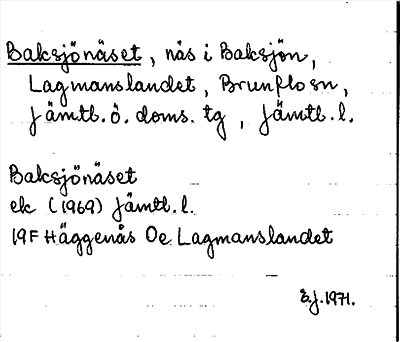 Baksjönäset, näs i Baksjön,
Lagmanslandet, Brunflo sn,
Jämtl. ö. doms. tg, Jämtl. l.
Baksjönäset
ek (1969) Jämtl. l.
19F Häggenås Oe Lagmanslandet
E.J. 1971.